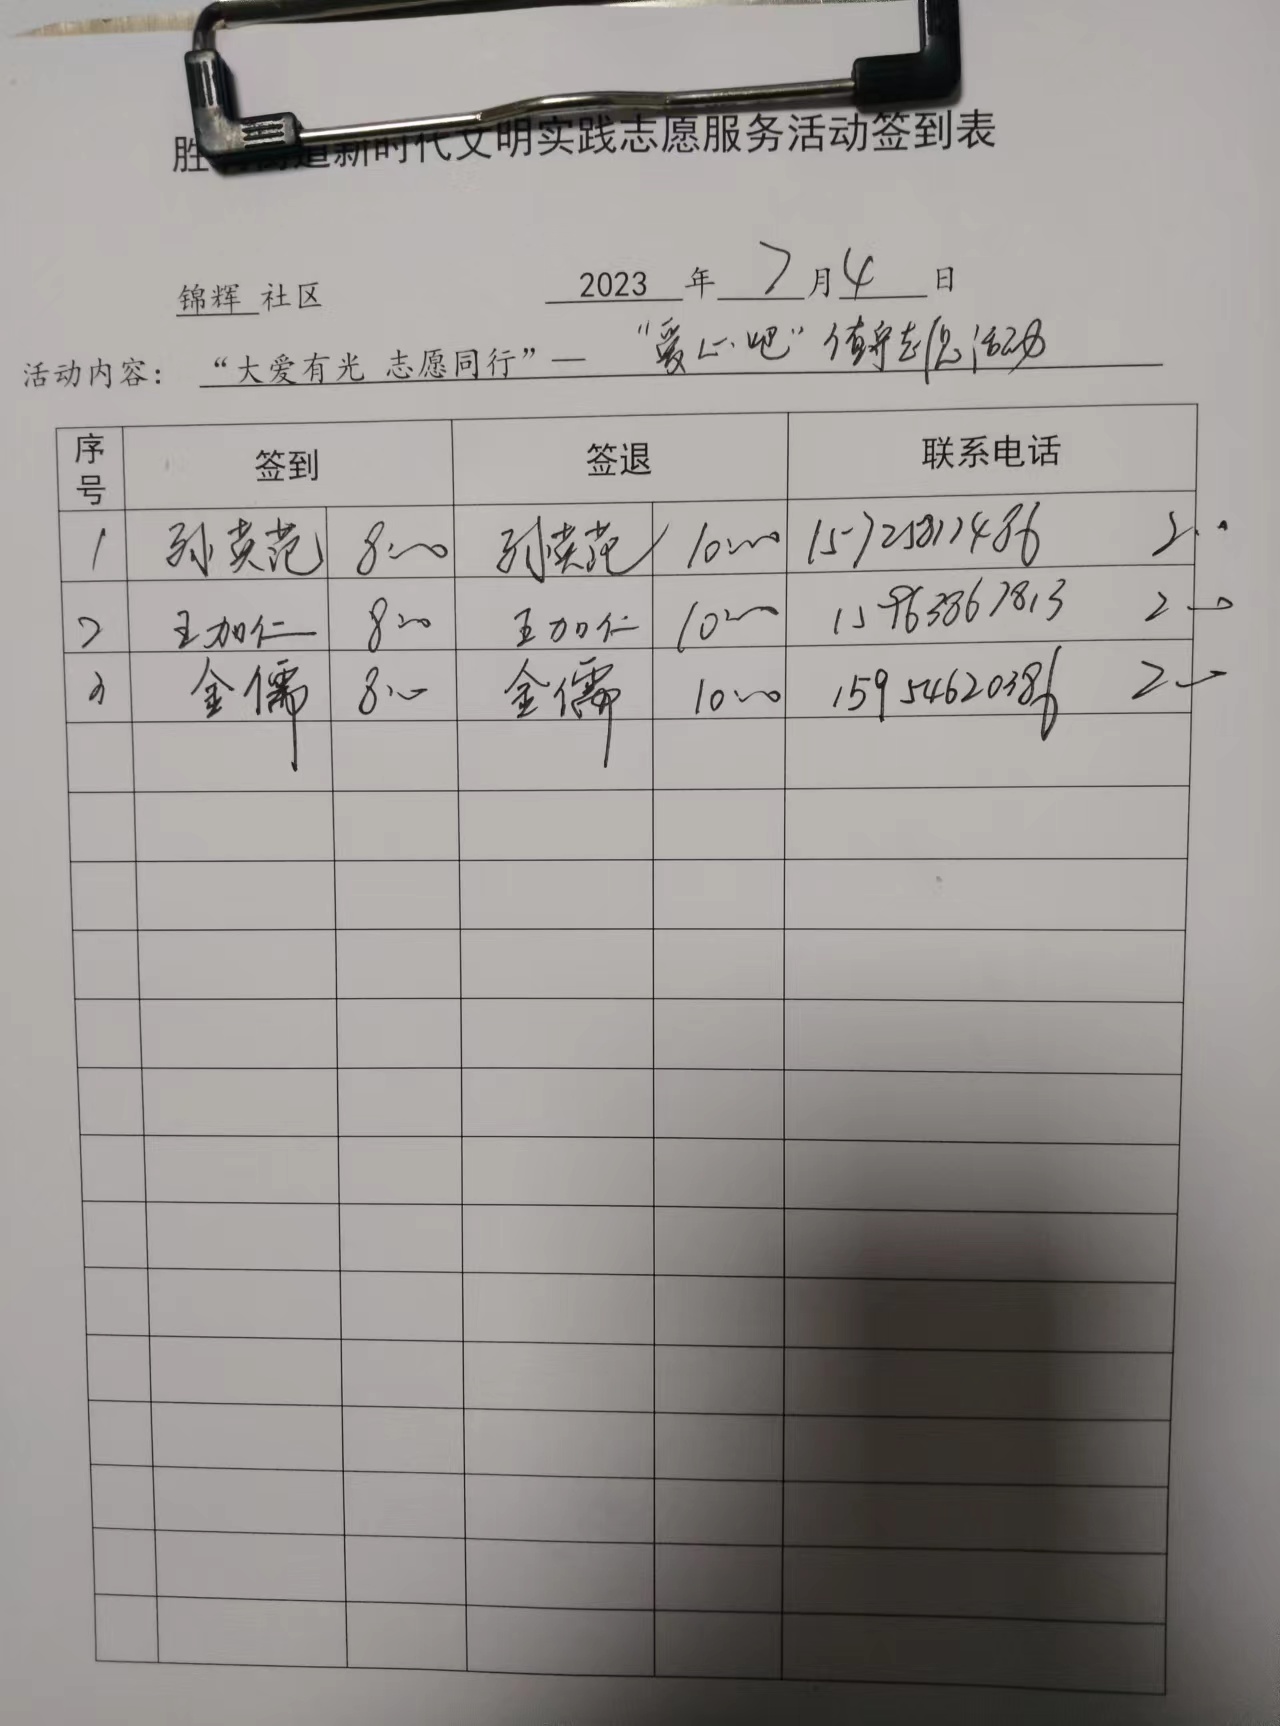 胜 街道新时代文明实践志愿服务活动签到表
锦辉 社区 2023 年 7 月 4 日
活动内容： “大爱有光 志愿同行”— “爱心吧”值守志愿活动
序号 签到 签退 联系电话
1 孙英范 8:00 孙英范 10:00 15725817486 2.0
2 王加仁 8:00 王加仁 10:00 15963867813 2:00
3 金儒 8:00 金儒 10:00 15954620386 2:00